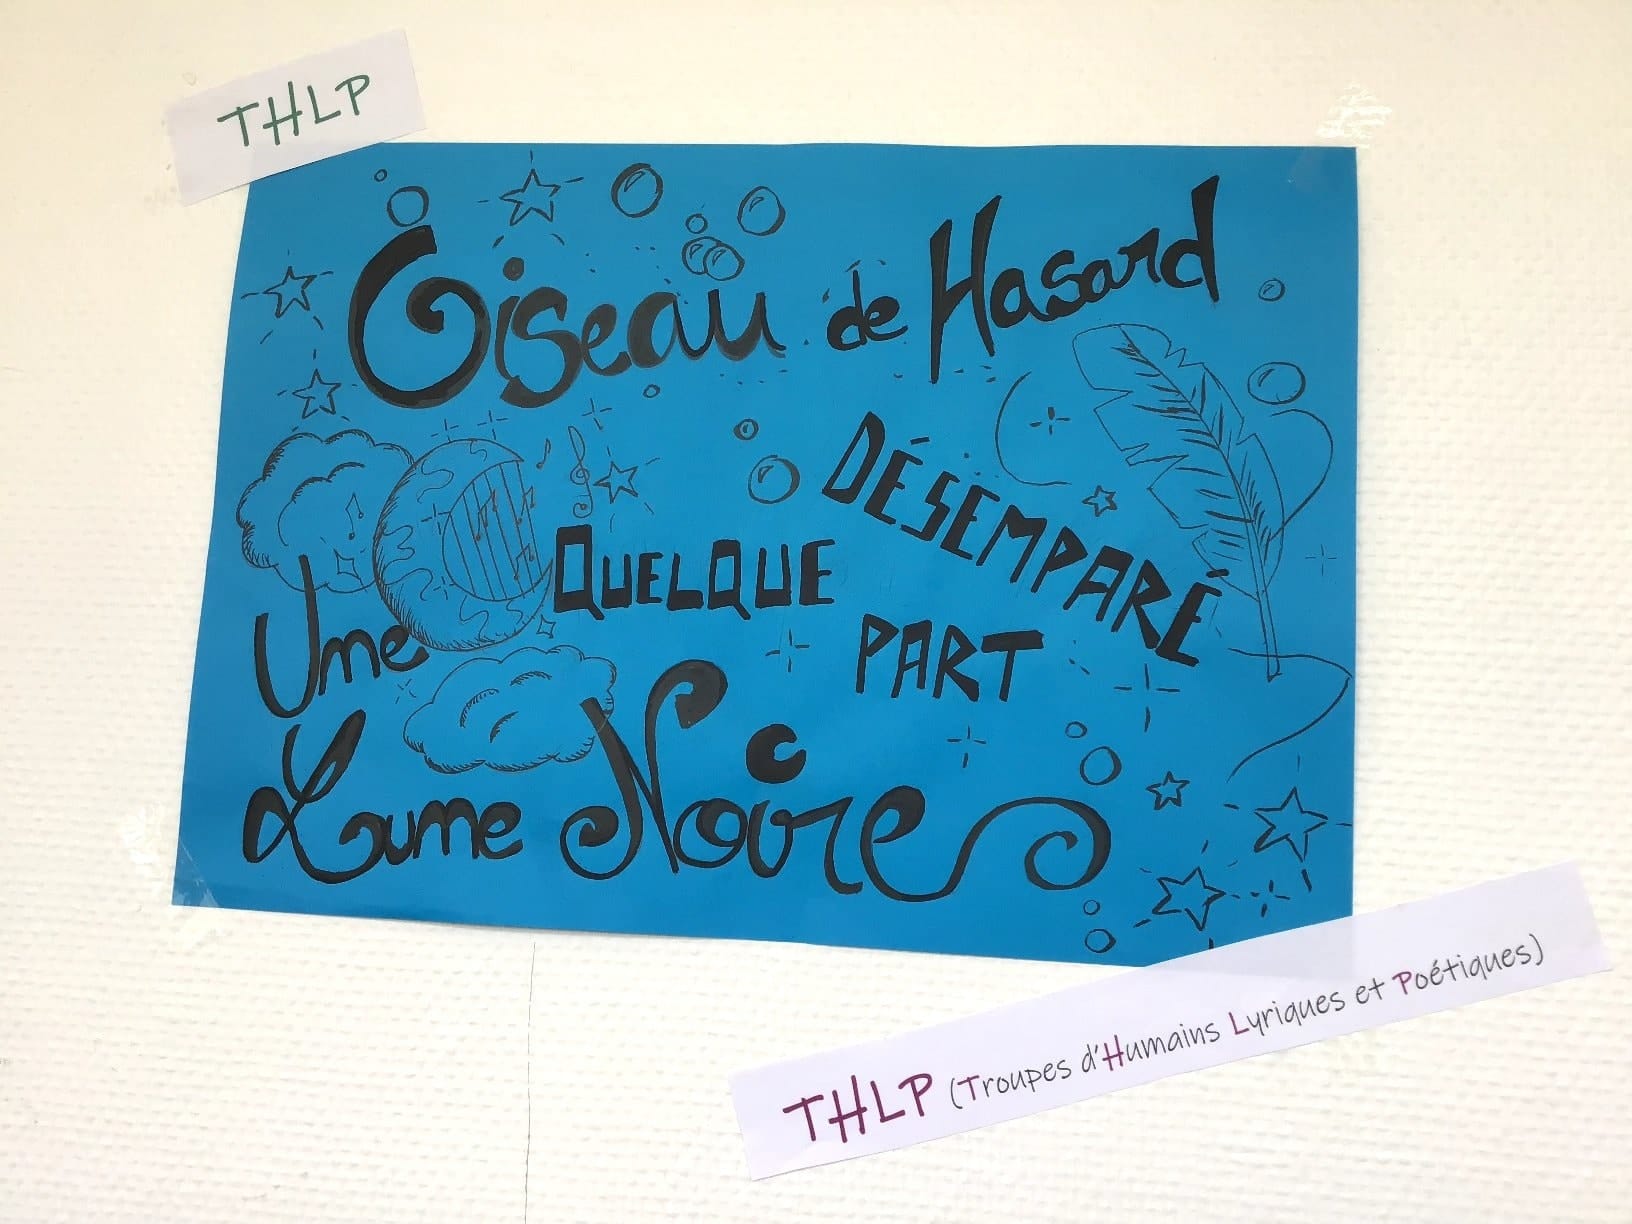 THLP
Oiseau de Hasard
DÉSEMPARÉ
QUELQUE
PART
Une
Lune Noire
THLP (Troupes d'Humains Lyriques et Poétiques)